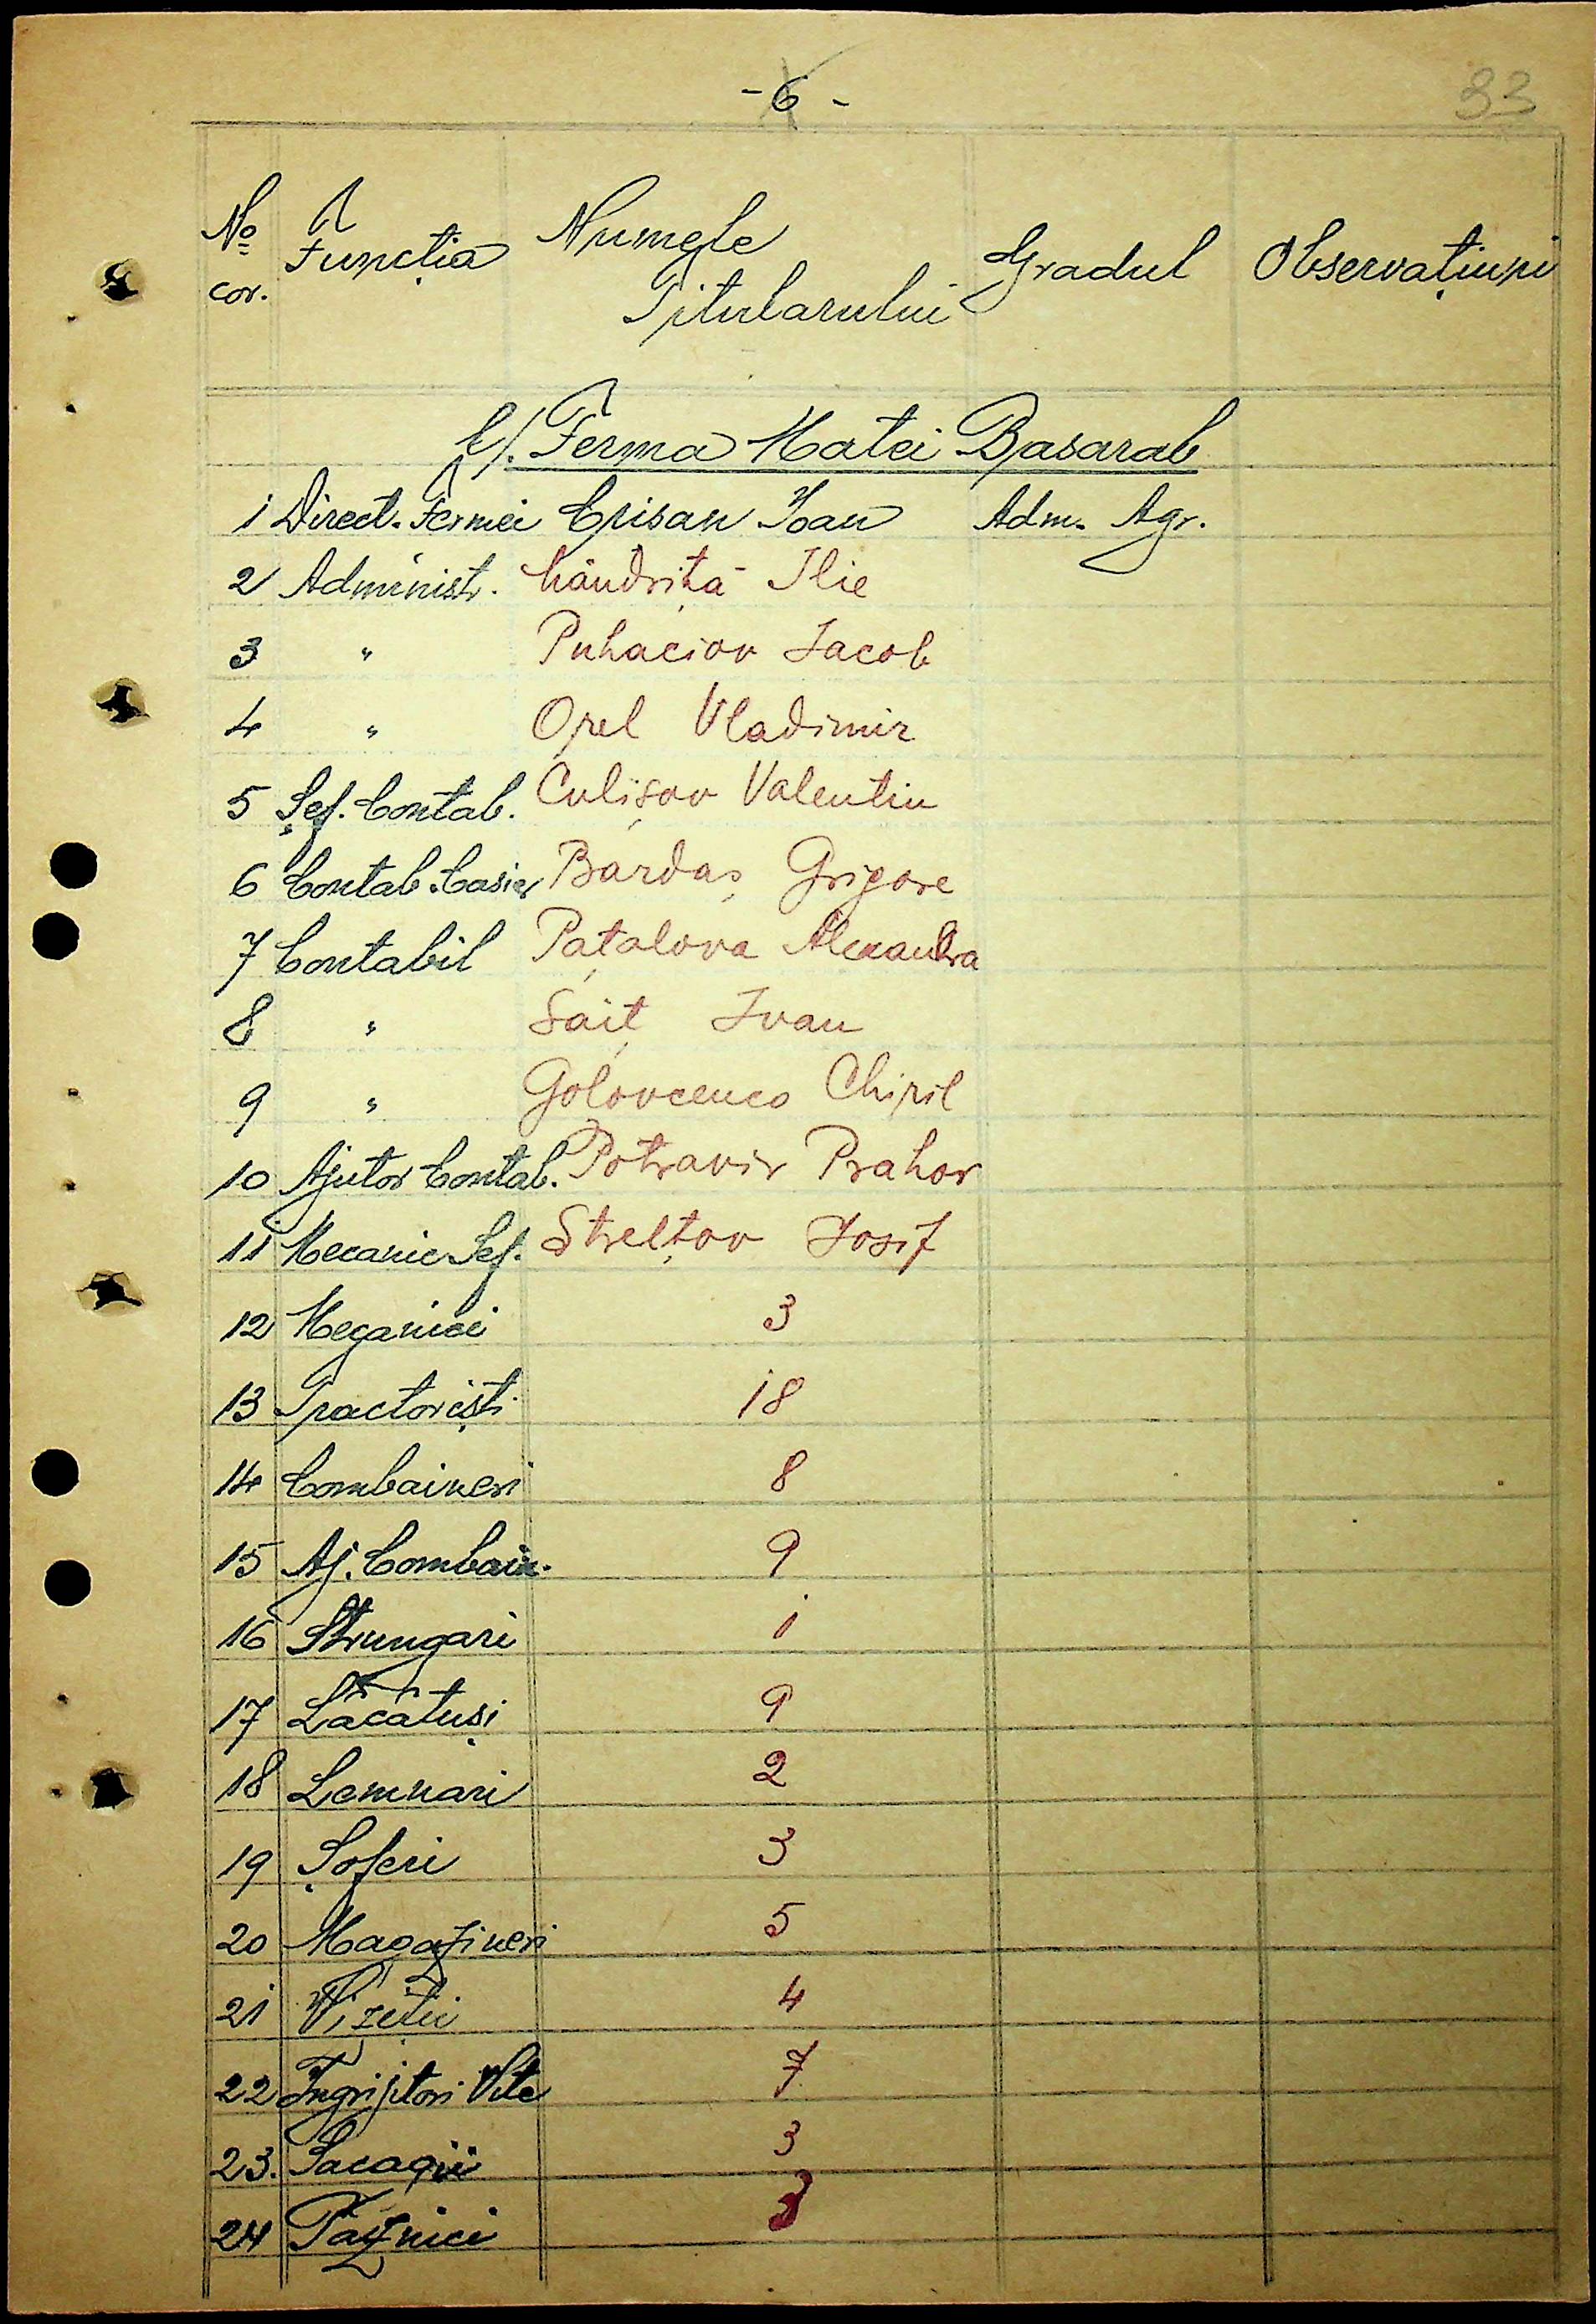 - 6 -
33
No cor. Funcția Numele Titularului Gradul Observațiuni
f/. Ferma Matei Basarab
1 Direct. Fermei Crisan Ioan Adm. Agr.
2 Administ. Mândrița Ilie
3 " Puhaciov Iacob
4 " Opel Vladimir
5 Șef. Contab. Culișov Valentin
6 Contab. Casier Bardaș Grigore
7 Contabil Pațalova Alexandra
8 " Saiț Ivan
9 " Golovcenco Chiril
10 Ajutor Contab. Potravir Prahor
11 Mecanic Șef. Strelțov Iosif
12 Mecanici 3
13 Tractoriști 18
14 Combaineri 8
15 Aj. Combain. 9
16 Strungari 1
17 Lăcătuși 9
18 Lemnari 2
19 Șoferi 3
20 Magazineri 5
21 Vizitii 4
22 Îngrijitori Vite 7
23. Sacagii 3
24 Paznici